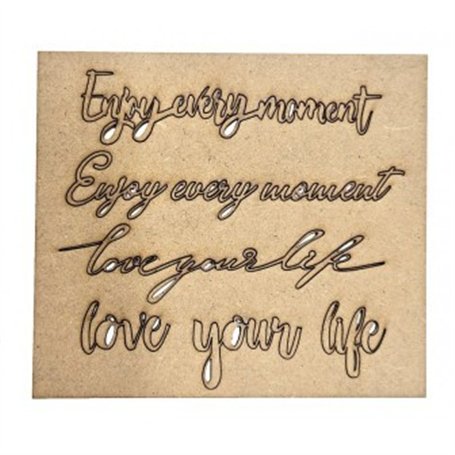 Enjoy every moment
Enjoy every moment
love your life
love your life